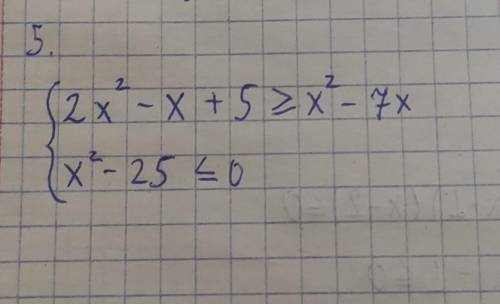 5.
2x² - x + 5 ≥ x² - 7x
x² - 25 ≤ 0